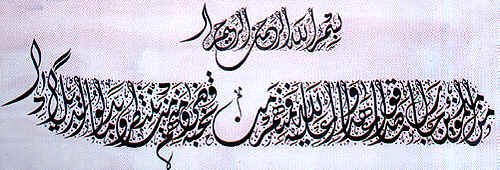 بسم الله الرحمن الرحيم
من المؤمنين رجال صدقوا ما عاهدوا الله عليه فمنهم من قضى نحبه ومنهم من ينتظر وما بدلوا تبديلا